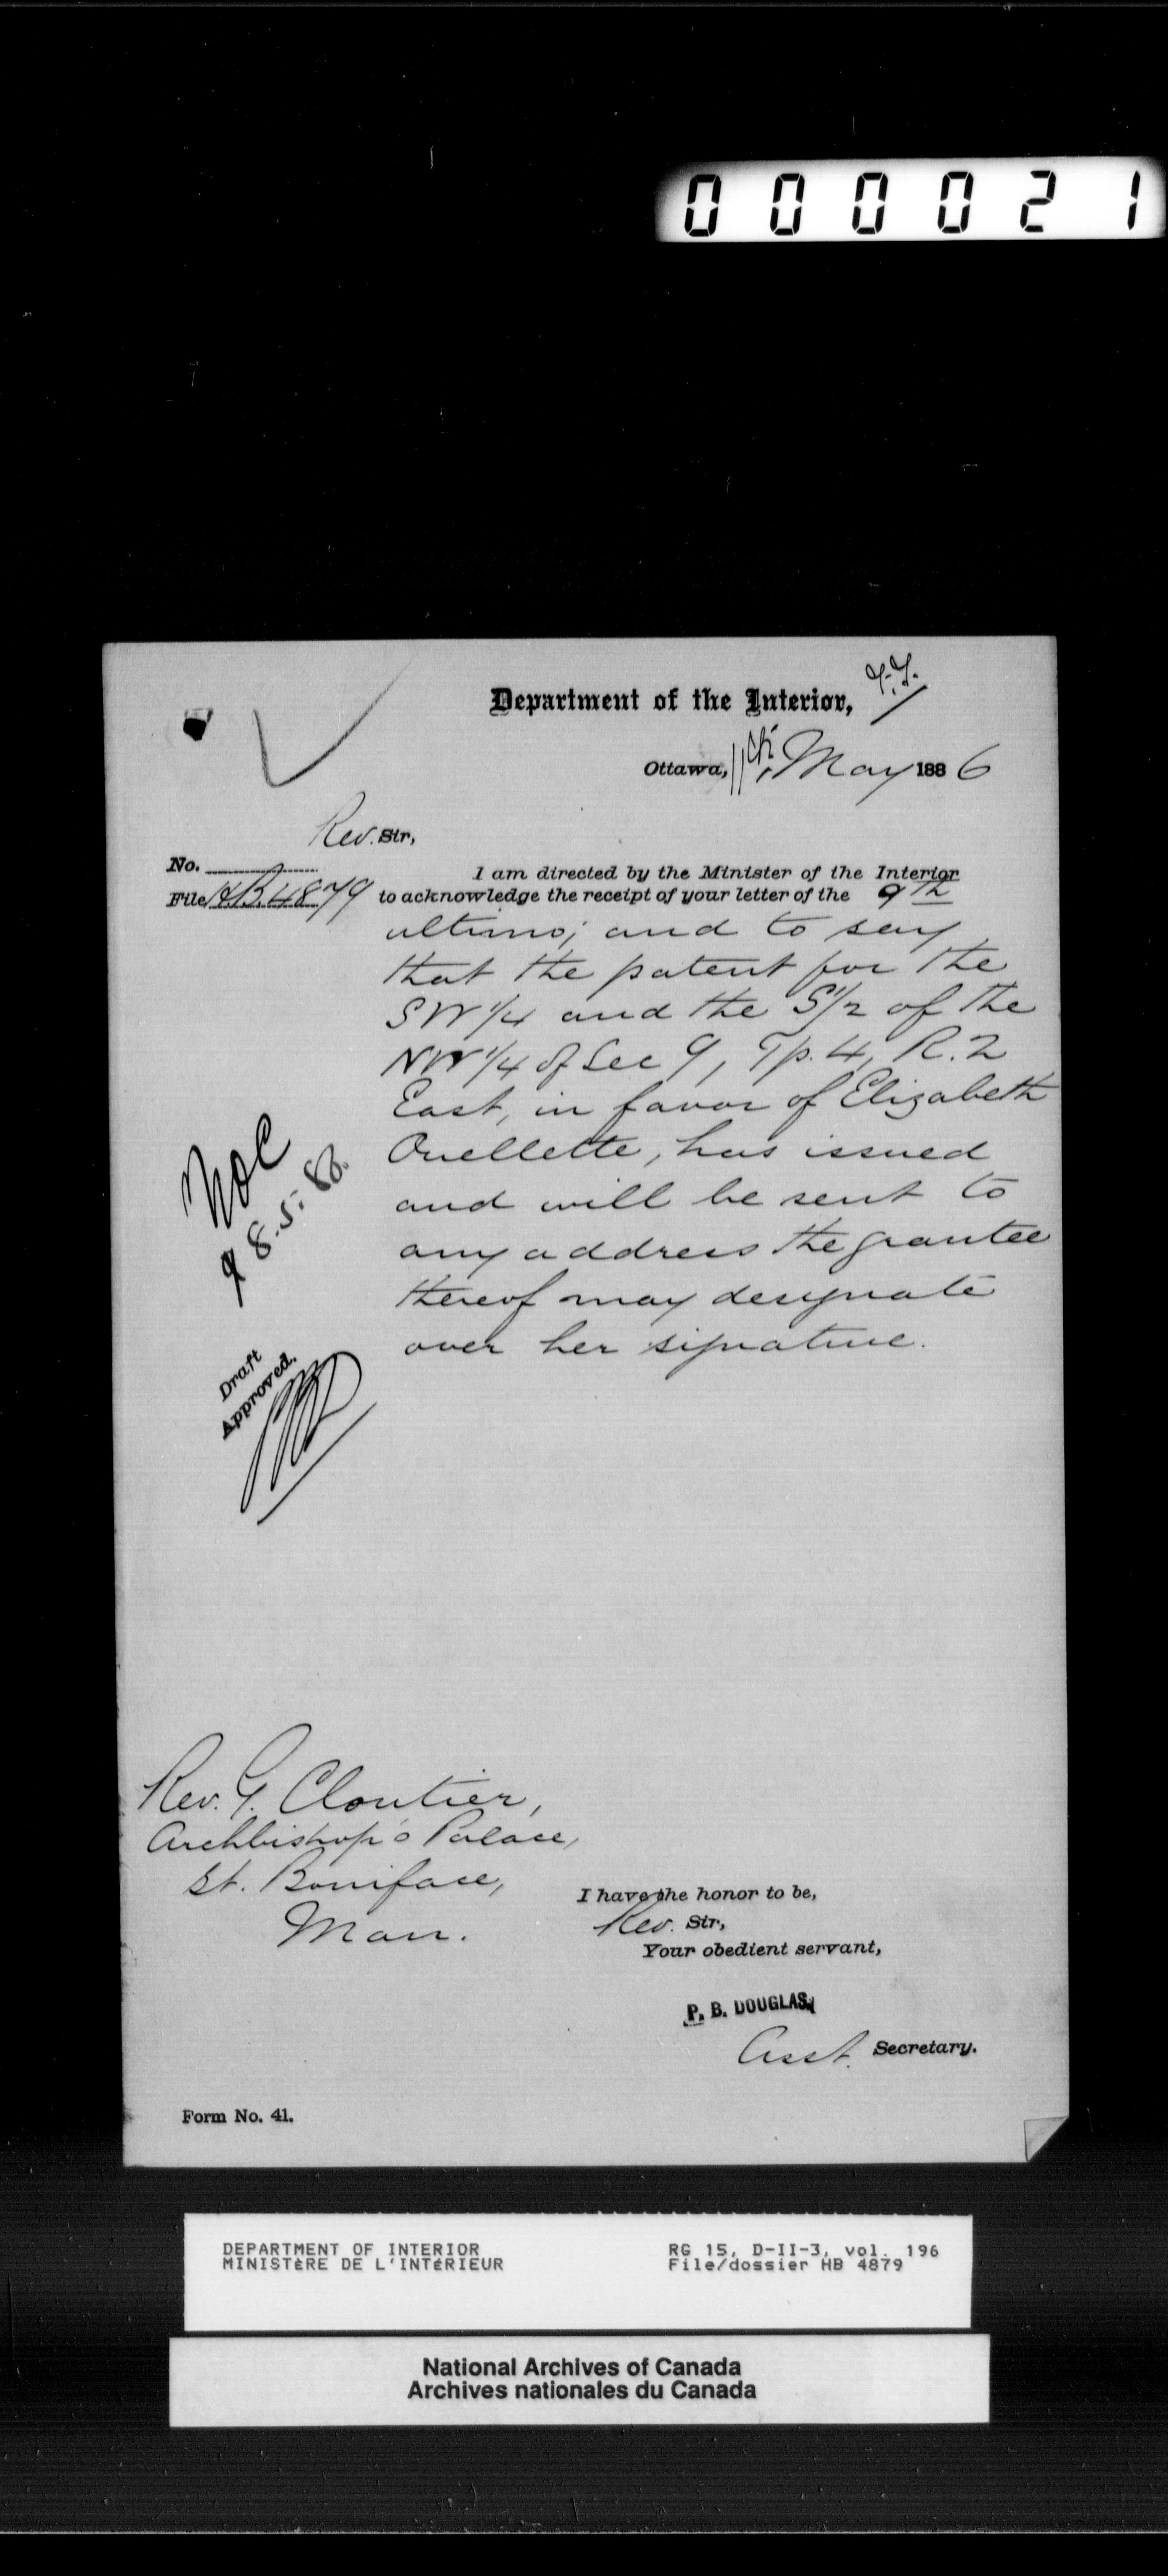 000021
Department of the Interior,
Ottawa, 11th, May 1886
Rev. Sir,
No.
File HB. 4879
I am directed by the Minister of the Interior
to acknowledge the receipt of your letter of the 9th
ultimo; and to say
that the patent for the
SW 1/4 and the S 1/2 of the
NW 1/4 of Sec 9, Tp. 4, R. 2
East, in favor of Elizabeth
Ouellette, has issued
and will be sent to
any address the grantee
thereof may designate
over her signature.
8.5.86.
Draft
Approved.
Rev. G. Cloutier,
Archbishop's Palace,
St. Boniface,
Man.
I have the honor to be,
Rev. Sir,
Your obedient servant,
P. B. DOUGLAS,
Asst. Secretary.
Form No. 41.
DEPARTMENT OF INTERIOR
MINISTÈRE DE L'INTÉRIEUR
RG 15, D-II-3, vol. 196
File/dossier HB 4879
National Archives of Canada
Archives nationales du Canada